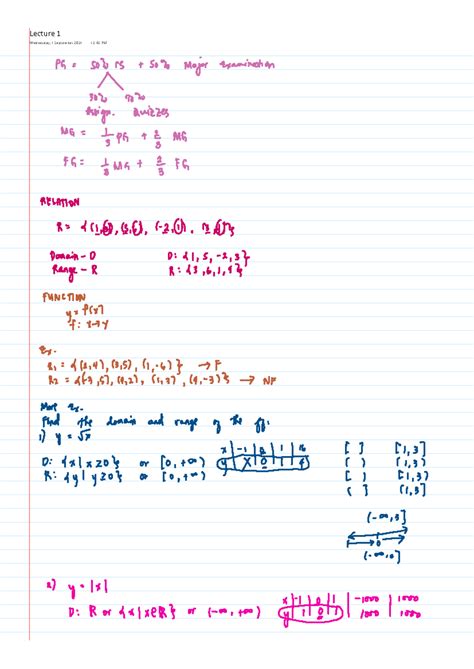 Lecture 1
Wednesday, 1 September 2021
PG = 50% CS + 50% Major Examination
30% 70%
Assign. Quizzes
MG = 1/3 PG + 2/3 MG
FG = 1/3 MG + 2/3 FG
RELATION
Domain - D D: {1, 5, -2, 3}
Range - R R: {3, 6, 1, 4}
FUNCTION
y = f(x)
f: x → y
Ex.
R1 = {(2,4), (3,5), (1,-6)} → F
R2 = {(-3,5), (4,2), (1,3), (4,-3)} → NF
More Ex.
Find the domain and range of the ff:
1) y = √x
x | -1 | 0 | 1 | 16
y | X | 0 | 1 | 4
D: {x|x≥0} or [0,+∞)
R: {y|y≥0} or [0,+∞)
[ ] [1,3]
( ) (1,3)
[ ) [1,3)
( ] (1,3]
(-∞,3]
0
(-∞,0]
2) y = |x|
x | -1 | 0 | 1 | -1000 | 1000
y | 1 | 0 | 1 | 1000 | 1000
D: R or {x|x∈R} or (-∞,+∞)